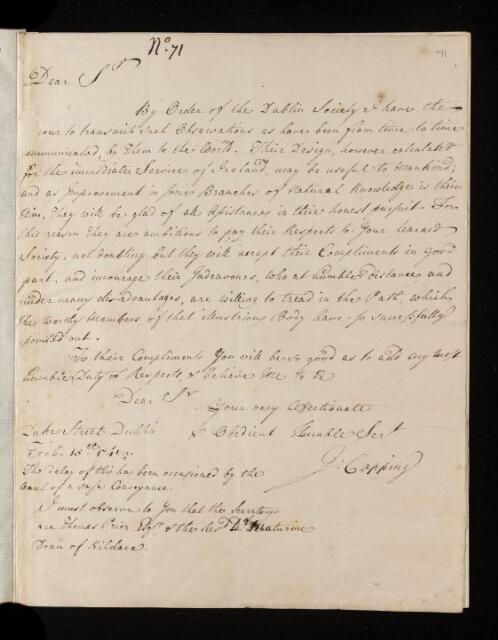 No. 71
71
Dear Sr.
By Order of the Dublin Society I have the
nour to transmit such Observations as have been from time to time
ommunicated by Them to the World. Their Design, however calculated
for the immediate Service of Ireland, may be useful to Mankind;
and as Improvement in some Branches of Natural Knowledge is their
Aim, They will be glad of all Assistances in their honest pursuit. For
this reason They are ambitious to pay their Respects to Your learned
Society, not doubting but they will accept their Compliments in good
part; and incourage their Indeavours, who at humble distance, and
under many disadvantages, are willing to tread in the Path, which
the worthy Members of that illustrious Body have so successfully
pointed out.
To their Compliments You will be so good as to add my most
humble Duty of Respects, & believe Me to be
Dear Sr
Your very Affectionate
& Obedient Humble Sert
J: Copping
Duke Street Dublin
Feb. 15th 174
The delay of this has been occasioned by the
want of a safe Conveyance.
I must observe to You that the Secretarys
are Thomas Prior Esqr. & the Revd. Dr. Maturine
Dean of Kildare.